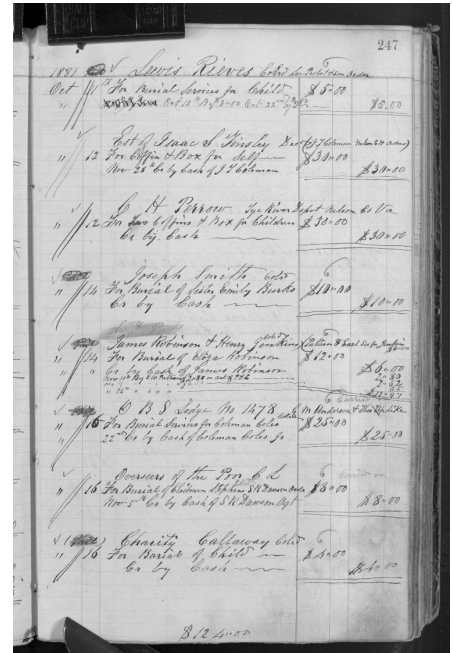 247
1881 Lewis Rieves Col'd
Oct 11 For Burial Services for Child $5.00
" Oct 25th $5.00
Est of Isaac S Tinsley Dec
" 12 For Coffin & Box for Self $30.00
Nov 23d Cr by Cash of J T Coleman $30.00
C H Perrow Tye River Depot Nelson Co Va
" 12 For Two Coffins & Box for Children $30.00
Cr by Cash $30.00
Joseph Smith Col'd
" 14 For Burial of Sister Emily Burks $10.00
Cr by Cash $10.00
James Robinson & Henry Jenkins
" 14 For Burial of Eliza Robinson $12.00
" Cr by Cash of James Robinson
O B S Lodge No 1478
" 15 For Burial Services for Coleman Coles $25.00
22nd Cr by Cash of Coleman Coles Jr $25.00
Overseers of the Poor C L
" 16 For Burial of Stephens S K Dawson $8.00
Nov 5th Cr by Cash of S K Dawson Agt $8.00
Charity Callaway Col'd
" 16 For Burial of Child $4.00
Cr by Cash $4.00
$124.00